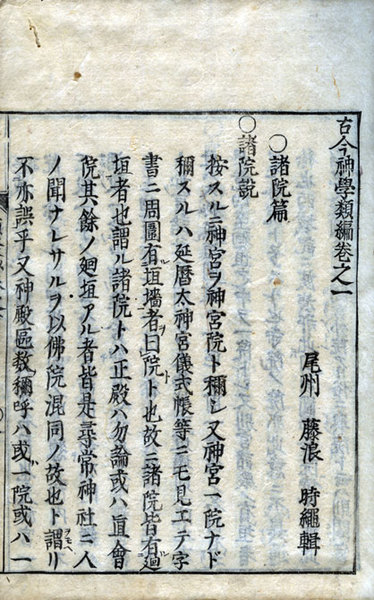 古今神學類編卷之一
尾州 藤浪 時繩輯
○諸院篇
○諸院説
按スルニ神宮ヲ神宮院ト稱シ又神宮一院ナド
稱スルハ延暦太神宮儀式帳等ニモ見エテ字
書ニ周圍有垣墻者曰院ト也故ニ諸院皆有廻
垣者也謂ル諸院トハ正殿ハ勿論或ハ直會
院其餘ノ廻垣アル者皆是尋常神社ニ人
ノ聞ナレサルヲ以佛院混同ノ故也ト謂リ
不亦誤乎又神殿區数稱呼ハ或一院或ハ一